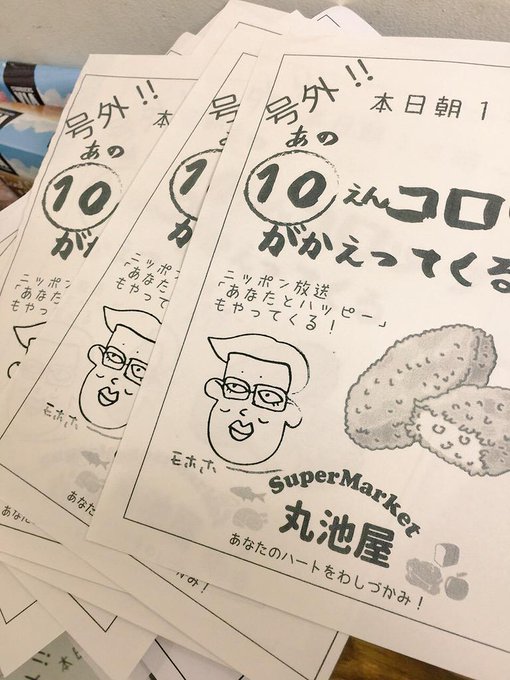 号外!!
本日朝1
あの
10えんコロ
がかえってくる
ニッポン放送
「あなたとハッピー」
もやってくる!
モホホ
SuperMarket
丸池屋
あなたのハートをわしづかみ!
号外!!
あの
1
が
ニッポン
「あなた
もやって
モホホ
あなた
号外!!
本
あの
10
がか
ニッポン
「あなた
もやっ
あなた